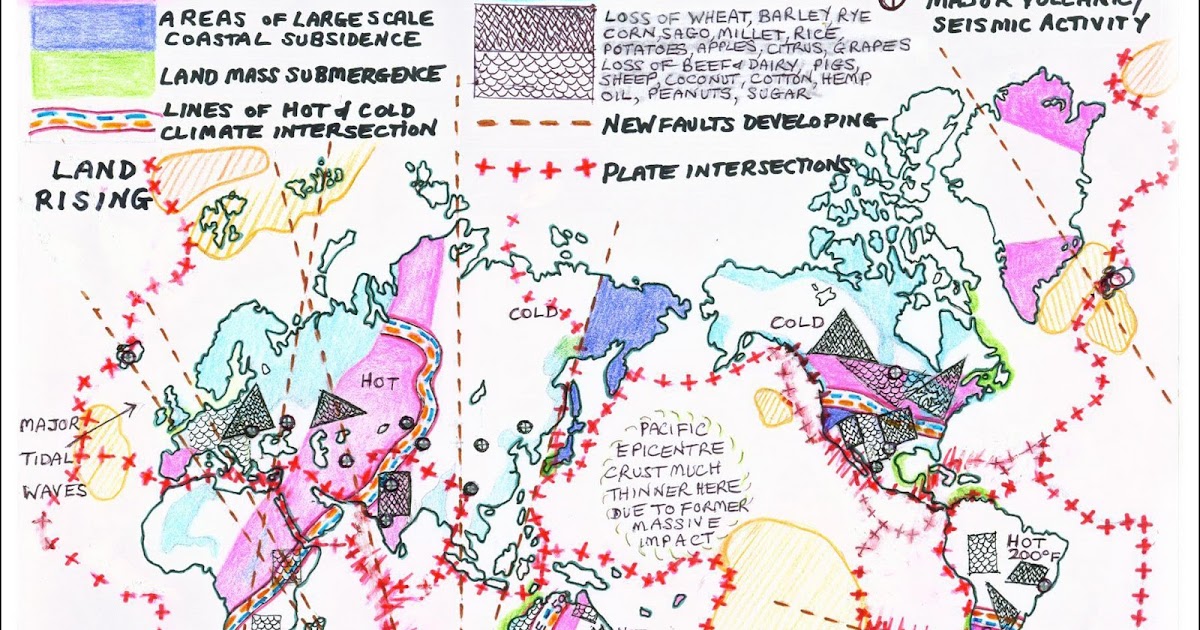 AREAS OF LARGE SCALE
COASTAL SUBSIDENCE
LAND MASS SUBMERGENCE
LINES OF HOT & COLD
CLIMATE INTERSECTION
LOSS OF WHEAT, BARLEY, RYE
CORN, SAGO, MILLET, RICE,
POTATOES, APPLES, CITRUS, GRAPES
LOSS OF BEEF & DAIRY, PIGS,
SHEEP, COCONUT, COTTON, HEMP
OIL, PEANUTS, SUGAR
NEW FAULTS DEVELOPING
PLATE INTERSECTIONS
MAJOR VOLCANIC/
SEISMIC ACTIVITY
LAND
RISING
COLD
COLD
HOT
MAJOR
TIDAL
WAVES
PACIFIC
EPICENTRE
CRUST MUCH
THINNER HERE
DUE TO FORMER
MASSIVE
IMPACT
HOT
200°F